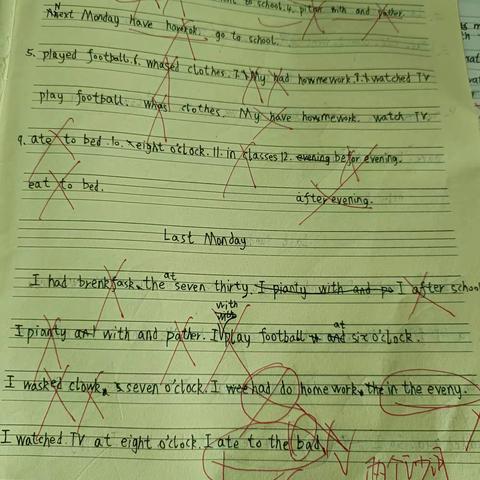 to school. 4. pitan with and pather.
Next Monday have havekok. go to school.
5. played football. 6. whased clothes. 7. My had howmework. 8. watched TV
play football. whas clothes. My have howmework. watch TV.
9. ate to bed. 10. eight o'clock. 11. in classes 12. evening before evening.
eat to bed. after evening.
Last Monday
at
I had brenkfask. the seven thirty. I pianty with and pa I after school
with
at
I pianty and with and pather. I play football and six o'clock.
I wasked clowk. seven o'clock. I wee had do homework, the in the eveny.
I watched TV at eight o'clock. I ate to the bad
两个动词